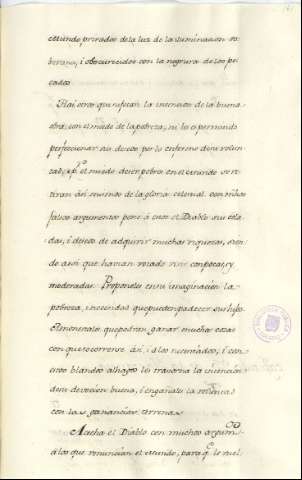 Mundo privados de la luz de la iluminacion so
berana, i obscurecidos con la negrura de los pe
cados
Hai otros que sufocan la intencion de la buena
obra, con el miedo de la pobreza, ni lo esperando
perfeccionar su deseo por lo enfermo de su volun
tad, el miedo de ser pobres en el mundo se re
tiran a si mismos de la gloria celestial. con
falsos argumentos pone á estos el Diablo sus cela
das, i deseo de adquirir muchas riquezas, sien
do assi que havian votado vivir con pocas, y
moderadas. Proponeles en su imaginacion la
pobreza, i necesidad que pueden padecer sus hijos
que podran ganar muchas cosas
con que socorrerse á si, i á los necesitados; i con
estos blandos alhagos les trastorna la intencion
de su devocion buena, i engañala la
con las ganancias terrenas
Acecha el Diablo con muchos argum.tos
á los que renuncian el Mundo, para q.e le buel